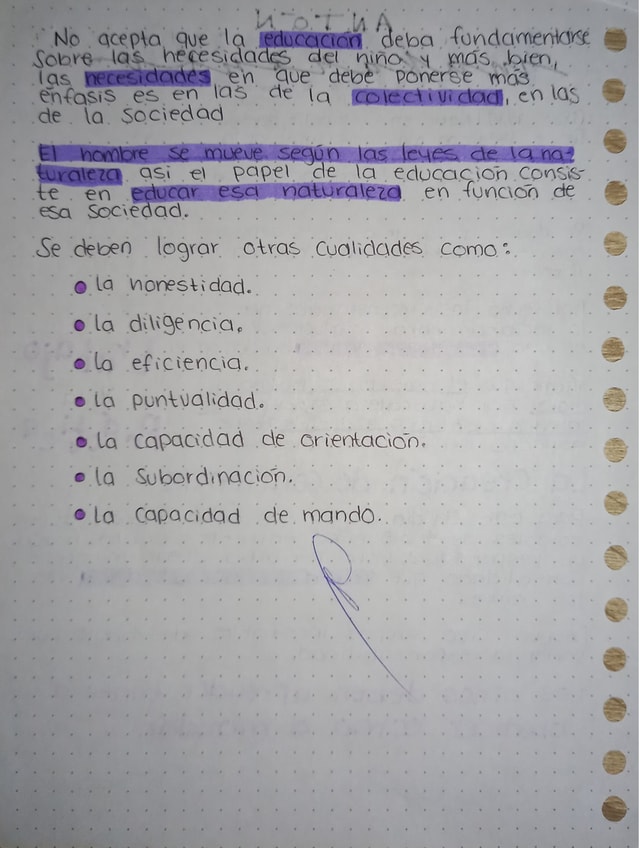 No acepta que la educación deba fundamentarse
sobre las necesidades del niño y más bien,
las necesidades en que debe ponerse más
énfasis es en las de la colectividad, en las
de la sociedad
El hombre se mueve según las leyes de la na-
turaleza así el papel de la educación consis-
te en educar esa naturaleza en función de
esa sociedad.
Se deben lograr otras cualidades como:
• la honestidad.
• la diligencia.
• la eficiencia.
• la puntualidad.
• la capacidad de orientación.
• la subordinación.
• la capacidad de mando.